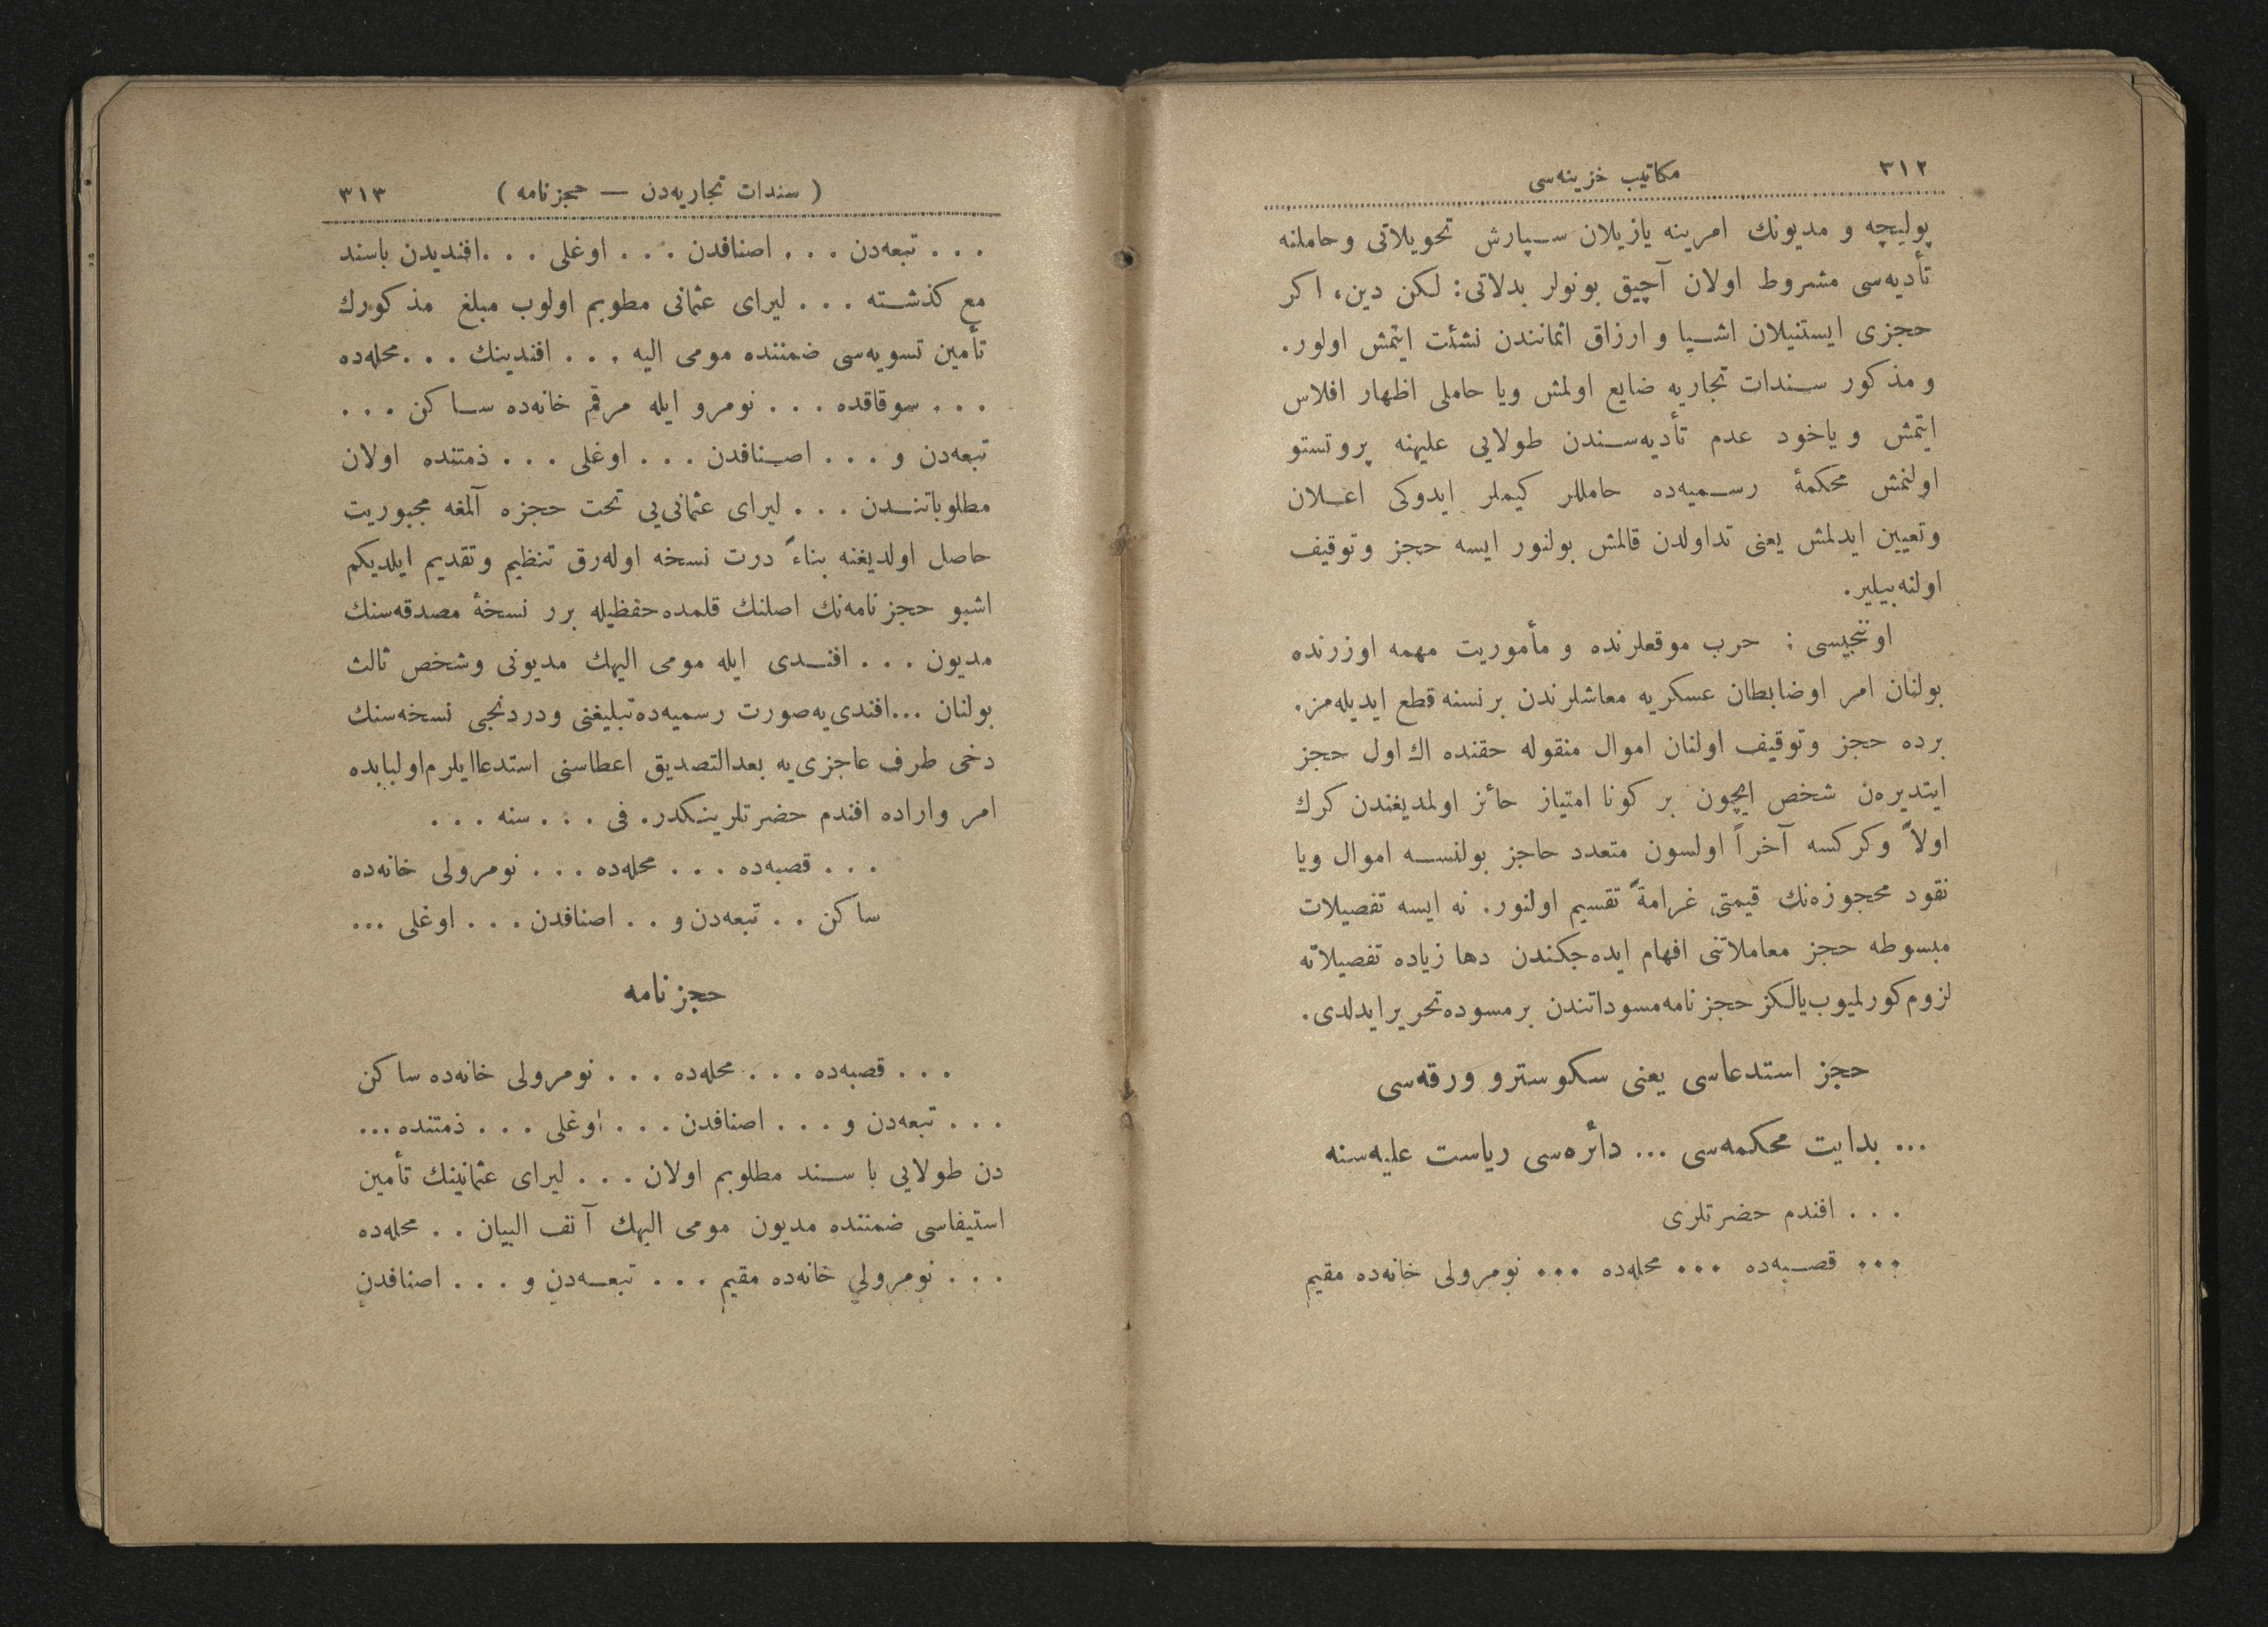 ٣١٢ مكاتیب خزینه‌سی
پولیچه و مدیونك امرینه یازیلان سپارش تحویلاتی و حاملنه
تأدیه‌سی مشروط اولان آچیق بونولر بدلاتی: لكن دین، اكر
حجزی ایستنیلان اشیا و ارزاق اثمانندن نشئت ایتمش اولور.
و مذكور سندات تجاریه ضایع اولمش ویا حاملی اظهار افلاس
ایتمش و یاخود عدم تأدیه‌سندن طولایی علیهنه پروتستو
اولنمش محكمهٔ رسمیه‌ده حامللر كیملر ایدوكی اعلان
وتعیین ایدلمش یعنی تداولدن قالمش بولنور ایسه حجز وتوقیف
اولنه‌بیلیر.
اوننجیسی : حرب موقعلرنده و مأموریت مهمه اوزرنده
بولنان امر اوضابطان عسكریه معاشلرندن برنسنه قطع ایدیله‌مز.
برده حجز وتوقیف اولنان اموال منقوله حقنده اك اول حجز
ایتدیره‌ن شخص ایچون بر كونا امتیاز حائز اولمدیغندن كرك
اولاً وكركسه آخراً اولسون متعدد حاجز بولنسه اموال ویا
نقود محجوزه‌نك قیمتی غرامةً تقسیم اولنور. نه ایسه تفصیلات
مبسوطه حجز معاملاتنی افهام ایده‌جكندن دها زیاده تفصیلاته
لزوم كورلمیوب یالكز حجزنامه مسوداتندن برمسوده تحریر ایدلدی.
حجز استدعاسی یعنی سكوسترو ورقه‌سی
... بدایت محكمه‌سی ... دائره‌سی ریاست علیه‌سنه
. . . افندم حضرتلری
... قصبه‌ده ... محله‌ده ... نومرولی خانه‌ده مقیم
( سندات تجاریه‌دن — حجزنامه ) ٣١٣
. . . تبعه‌دن . . . اصنافدن . . . اوغلی . . .افندیدن باسند
مع كذشته . . . لیرای عثمانی مطوبم اولوب مبلغ مذكورك
تأمین تسویه‌سی ضمننده مومی الیه . . . افندینك . . .محله‌ده
. . . سوقاقده . . . نومرو ایله مرقم خانه‌ده ساكن . . .
تبعه‌دن و . . . اصنافدن . . . اوغلی . . . ذمتنده اولان
مطلوباتندن . . . لیرای عثمانی‌یی تحت حجزه آلمغه مجبوریت
حاصل اولدیغنه بناءً درت نسخه اوله‌رق تنظیم وتقدیم ایلدیكم
اشبو حجزنامه‌نك اصلنك قلمده حفظیله برر نسخهٔ مصدقه‌سنك
مدیون . . . افندی ایله مومی الیهك مدیونی وشخص ثالث
بولنان ...افندی‌یه صورت رسمیه‌ده تبلیغنی ودردنجی نسخه‌سنك
دخی طرف عاجزی‌یه بعدالتصدیق اعطاسنی استدعا ایلرم اولبابده
امر واراده افندم حضرتلرینكدر. فی . . . سنه . . .
. . . قصبه‌ده . . . محله‌ده . . . نومرولی خانه‌ده
ساكن . . تبعه‌دن و . . اصنافدن . . . اوغلی ...
حجزنامه
. . . قصبه‌ده . . . محله‌ده . . . نومرولی خانه‌ده ساكن
. . . تبعه‌دن و . . . اصنافدن . . . اوغلی . . . ذمتنده ...
دن طولایی با سند مطلوبم اولان . . . لیرای عثمانینك تأمین
استیفاسی ضمننده مدیون مومی الیهك آنف البیان . . محله‌ده
. . . نومرولی خانه‌ده مقیم . . . تبعه‌دن و . . . اصنافدن